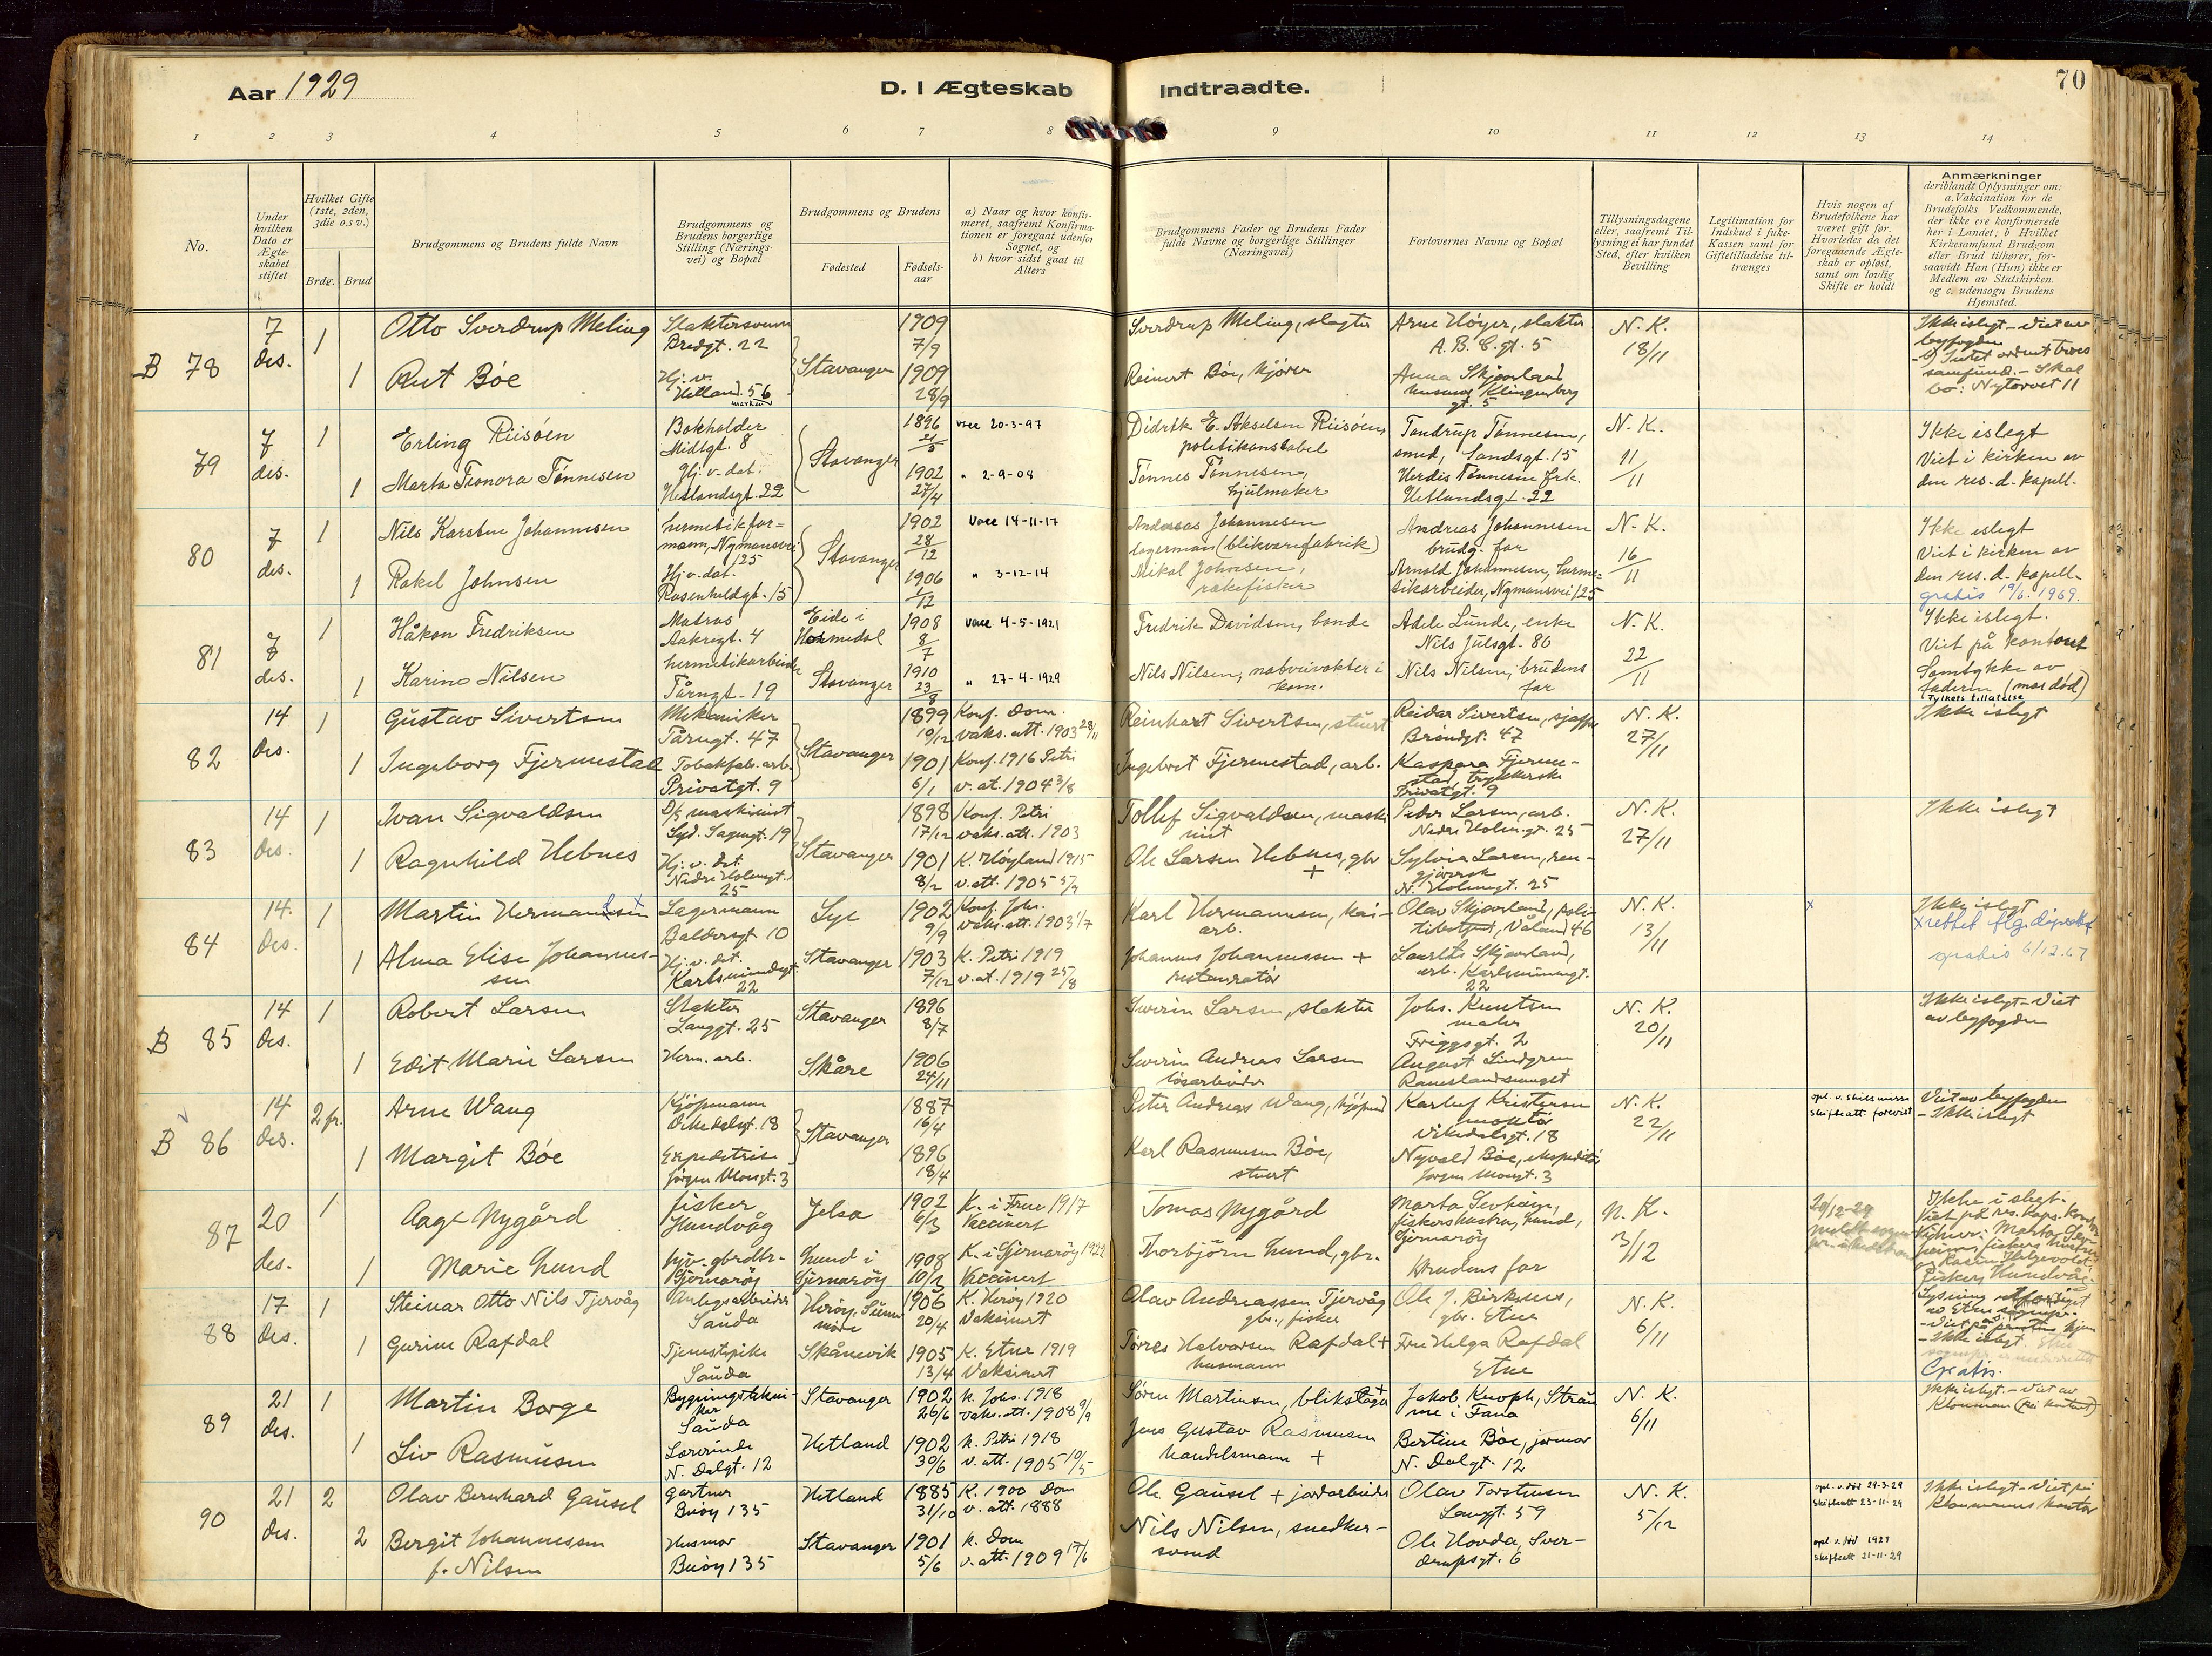 Aar 1929
D. I Ægteskab Indtraadte.
70
1 2 3 4 5 6 7 8 9 10 11 12 13 14
No.
Under hvilken Dato er Ægteskabet stiftet
Hvilket Gifte (1ste, 2den, 3die o.s.v.)
Brdg. Brud
Brudgommens og Brudens fulde Navn
Brudgommens og Brudens borgerlige Stilling (Næringsvei) og Bopæl
Brudgommens og Brudens
Fødested
Fødselsaar
a) Naar og hvor konfirmeret, saafremt Konfirmationen er foregaat udenfor Sognet, og
b) hvor sidst gaat til Alters
Brudgommens Fader og Brudens Fader fulde Navne og borgerlige Stillinger (Næringsvei)
Forlovernes Navne og Bopæl
Tillysningsdagene eller, saafremt Tillysning ei har fundet Sted, efter hvilken Bevilling
Legitimation for Indskud i fuke-Kassen samt for Giftetilladelse tiltrænges
Hvis nogen af Brudefolkene har været gift før. Hvorledes da det foregaaende Ægteskab er opløst, samt om lovlig Skifte er holdt
Anmærkninger
deriblandt Oplysninger om: a. Vakcination for de Brudefolks Vedkommende, der ikke ere konfirmerede her i Landet; b Hvilket Kirkesamfund Brudgom eller Brud tilhører, forsaavidt Han (Hun) ikke er Medlem av Statskirken. og c. udensogn Brudens Hjemsted.
B 78
7 des.
1
Otto Sverdrup Meling
Slaktersvenn
Bredgt. 22
Stavanger
1909
7/9
Sverdrup Meling, slagter
Arne Høyer, slakter
A. B. C. gt. 5
N. K.
18/11
Ikke i slegt - Viet av byfogden
1
Rut Bøe
Hj. v.
Hetland 56
marken
1909
28/9
Reinert Bøe, kjører
Anna Skjæveland
husmor Klingenberg gt. 5
Skal bo: Nytorvet 11
79
7 des.
1
Erling Riisøen
Bokholder
Midtgt. 8
Stavanger
1896
21/5
vacc 20-3-97
Didrik E. Akselsen Riisøen,
politikonstabel
Tandrup Tønnesen,
smed, Sandsgt. 15
N. K.
11/11
Ikke i slegt
Viet i kirken av
den res. d. kapell.
1
Marta Tionora Tønnesen
Hj. v. dat.
Hetlandsgt. 22
1902
27/4
" 2-9-08
Tønnes Tønnesen,
hjulmaker
Herdis Tønnesen frk.
Hetlandsgt. 22
80
7 des.
1
Nils Karsten Johannesen
hermetikfor=
mann, Nymansvei 125
Stavanger
1902
28/12
Vacc 14-11-17
Andreas Johannesen
lagermann (blikvarefabrik)
Andreas Johannesen
brudg. far
N. K.
16/11
Ikke i slegt
Viet i kirken av
den res. d. kapell.
gratis 19/6. 1969.
1
Rakel Johnsen
Hj. v. dat.
Rosenheldgt. 15
1906
1/12
" 3-12-14
Mikal Johnsen,
rekefisker
Arnold Johannesen, herme=
tikarbeider, Nymansvei 125
81
7 des.
1
Håkon Fredriksen
Matros
Aakregt. 4
Eide i
Hosmedal
1908
8/7
vacc 4-5-1921
Fredrik Davidsen, bonde
Adele Lunde, enke
Nils Julsgt. 80
N. K.
22/11
Ikke i slegt.
Viet på kontoret
Samtykke av
faderen (mor død)
Fylkets tillatelse
1
Karine Nilsen
hermetikarbeider
Tårngt. 19
Stavanger
1910
23/8
" 27-4-1929
Nils Nilsen, nattveivakter i
kom.
Nils Nilsen, brudens
far
82
14 des.
1
Gustav Sivertsen
Mekaniker
Tårngt. 47
Stavanger
1899
10/12
Konf. Dom.
vaks. att. 1903 28/11
Reinhart Sivertsen, stuert
Reidar Sivertsen, sjaffør
Brøndgt. 47
N. K.
27/11
Ikke i slegt
1
Ingeborg Fjermestad
Tobakfab. arb.
Privatgt. 9
1901
6/1
Konf. 1916 Petri
v. at. 1904 3/8
Ingebret Fjermestad, arb.
Kaspara Fjerme-
stad, trykkerske
Privatgt. 9
83
14 des.
1
Ivar Sigvaldsen
D/s maskinist
Lyd. Sagengt. 19
Stavanger
1898
17/12
Konf. Petri
vaks. att. 1903
Tollef Sigvaldsen, maski
nist
Peder Larsen, arb.
Nedre Holm.gt. 25
N. K.
27/11
Ikke i slegt
1
Ragnhild Hebnes
Hj. v. det.
Nedre Holmegt.
25
1901
8/2
K. Høyland 1915
v. att. 1905 5/7
Ole Larsen Hebnes, gbr
+
Sylvia Larsen, ren-
gjørersk
N. Holmegt. 25
84
14. des.
1
Martin Hermansen x
Lagermann
Baldersgt 10
Lye
1902
9/9
Konf. Johs.
vaks. att. 1903 1/7
Karl Hermannsen, kai-
arb.
Olav Skjæveland, poli-
tibetjent, Våland 46
N. K.
13/11
x
Ikke i slegt
x rettet flg. dåpsatt
gratis 6/12.67
1
Alma Elise Johannes-
sen
Hj. v. det.
Karlsminnegt.
22
Stavanger
1903
7/12
K. Petri 1919
v. at. 1919 25/8
Johannes Johannessen +
restauratør
Skjæveland,
arb. Karlsminnegt.
22
B 85
14 des.
1
Robert Larsen
Slakter
Langgt. 25
Stavanger
1896
8/7
Severin Larsen, slakter
Johs. Knutsen
maler
Friggsgt. 2
N. K.
20/11
Ikke i slegt - Viet
av byfogden
1
Edit Marie Larsen
Herm. arb.
Skåre
1906
24/11
Severin Andreas Larsen
løsarbeider
August Lindgren
Rameslandsmuget
B 86
14 des.
2 fr.
Arne Wang
Kjøpmann
Vikedalsgt. 18
Stavanger
1887
16/4
Peter Andreas Wang, kjøpmd
Karluf Kristensen
montør
Vikedalsgt. 18
N. K.
22/11
opl. v. skilsmisse
skifteatt forevist
Viet av byfogden
- Ikke i slegt
1
Margit Bøe
Expeditrise
Jørgen Moesgt. 3
1896
18/4
Karl Rasmussen Bøe,
stuert
Nyvald Bøe, ekspeditør
Jørgen Moesgt. 3
87
20 des.
1
Aage Nygård
fisker
Hundvåg
Jelsa
1902
6/3
K. i Frue 1917
Vaccinert
Tomas Nygård
Marta
fiskershustru, Lund,
Gjernarøy
N. K.
3/12
20/12-29
Ikke i slegt.
Hundvåg.
1
Marie Lund
hjv. gbrdtr.
Gjernarøy
Lund i
Gjernarøy
1908
10/2
K. i Gjernarøy 1922
Vaccinert
Thorbjørn Lund, gbr.
Brudens far
88
17 des.
1
Steinar Otto Nils Tjervåg
Anlegsarbeider
Sauda
Herøy. Sunn
møre
1906
20/4
K. Herøy 1920
Vaksinert
Olav Andreassen Tjervåg
gbr., fisker
Ole J. Birknes,
gbr. Etne
N. K.
6/11
Lysning utferdiget
- Ikke i slegt.
Gratis.
1
Gurine Rafdal
Tjenestepike
Sauda
Skånevik
1905
13/4
K. Etne 1919
Vaksinert
Tørres Halvorsen Rafdal +
husmann
Fru Helga Rafdal
Etne
89
21 des.
1
Martin Borge
Bygningstekni-
ker
Sauda
Stavanger
1902
26/6
k. Johs. 1918
vaks. att. 1908 9/9
Søren Martinsen, blikslager +
Jakob Knoph, Strau
me i Fana
N. K.
6/11
Ikke i slegt. - Viet av
Klouman (på kontoret)
1
Liv Rasmussen
Lærerinde
N. Dalgt. 12
Hetland
1902
30/6
k. Petri 1918
v. att. 1905 10/5
Jens Gustav Rasmussen
handelsmann +
Bertine Bøe, jormor
N. Dalgt. 12
90
21 des.
2
Olav Bernhard Gausel
gartner
Buøy 135
Hetland
1885
31/10
K. 1900 Dom
v. att. 1888
Ole Gausel + jordarbeider
Olav Torstensen
Langgt. 59
N. K.
5/12
opl. v. død 29-3-29
Skifteatt 23-11-29
Ikke i slegt - Viet på
Kloumanns kontor
2
Bergit Johannessen
f. Nilsen
Husmor
Buøy 135
Stavanger
1901
5/6
k. Dom
v. att. 1909 17/6
Nils Nilsen, snedker-
svend
Ole Hovda, Sver-
drupsgt. 6
opl. v. død 1927
Skifteatt 21-11-29